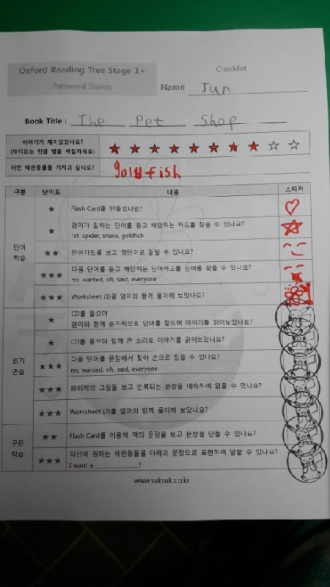 Oxford Reading Tree Stage 1+
Patterned Stories
Checklist
Name Jun
Book Title : The Pet Shop
이야기가 재미있었나요?
(재미있는 만큼 별을 색칠하세요) ★ ★ ★ ★ ★ ★ ★ ★ ☆ ☆
어떤 애완동물을 가지고 싶나요? goldfish
구분 난이도 내용 스티커
단어
학습
★ Flash Card를 만들었나요?
★ 엄마가 말하는 단어를 듣고 해당하는 카드를 찾을 수 있나요?
rat, spider, snake, goldfish
★★ 단어카드를 보고 영단어로 말할 수 있나요?
★★★ 다음 단어를 듣고 해당하는 단어카드를 찾을 수 있나요?
no, wanted, oh, said, everyone
★★★ Worksheet (1)을 엄마와 함께 풀어보았나요?
읽기
연습
★ CD를 들으며
엄마와 함께 손가락으로 단어를 짚으며 이야기를 읽어보았나요?
★ CD를 들으며 함께 큰 소리로 이야기를 읽어보았나요?
★★★ 다음 단어를 문장에서 찾아 손으로 짚을 수 있나요?
no, wanted, oh, said, everyone
★★★ 페이지의 그림을 보고 반복되는 문장을 예측하여 읽을 수 있나요?
★★★ Worksheet (2)를 엄마와 함께 풀어보았나요?
구문
학습
★★ Flash Card를 이용해 책의 문장을 보고 문장을 만들 수 있나요?
★★★ 자신이 원하는 애완동물을 아래의 문장으로 표현하여 말할 수 있나요?
I want a ________!
www.suksuk.co.kr